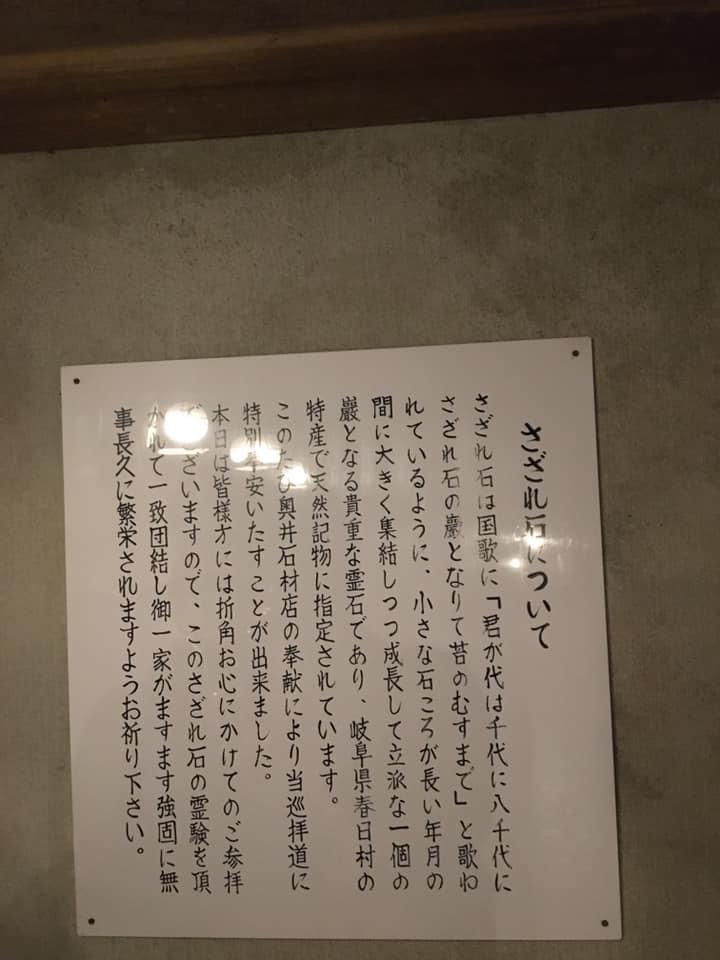 さざれ石について
さざれ石は国歌に「君が代は千代に八千代に
さざれ石の巖となりて苔のむすまで」と歌わ
れているように、小さな石ころが長い年月の
間に大きく集結しつつ成長して立派な一個の
巖となる貴重な霊石であり、岐阜県春日村の
特産で天然記物に指定されています。
このたび奥井石材店の奉献により当巡拝道に
特別奉安いたすことが出来ました。
本日は皆様方には折角お心にかけてのご参拝
でございますので、このさざれ石の霊験を頂
かれて一致団結し御一家がますます強固に無
事長久に繁栄されますようお祈り下さい。